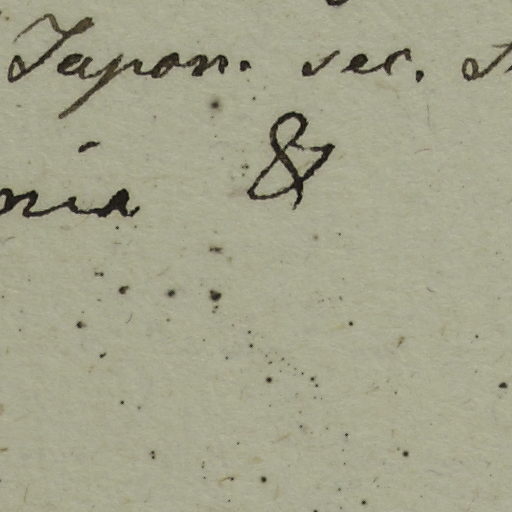 Japon. sec.
nia &